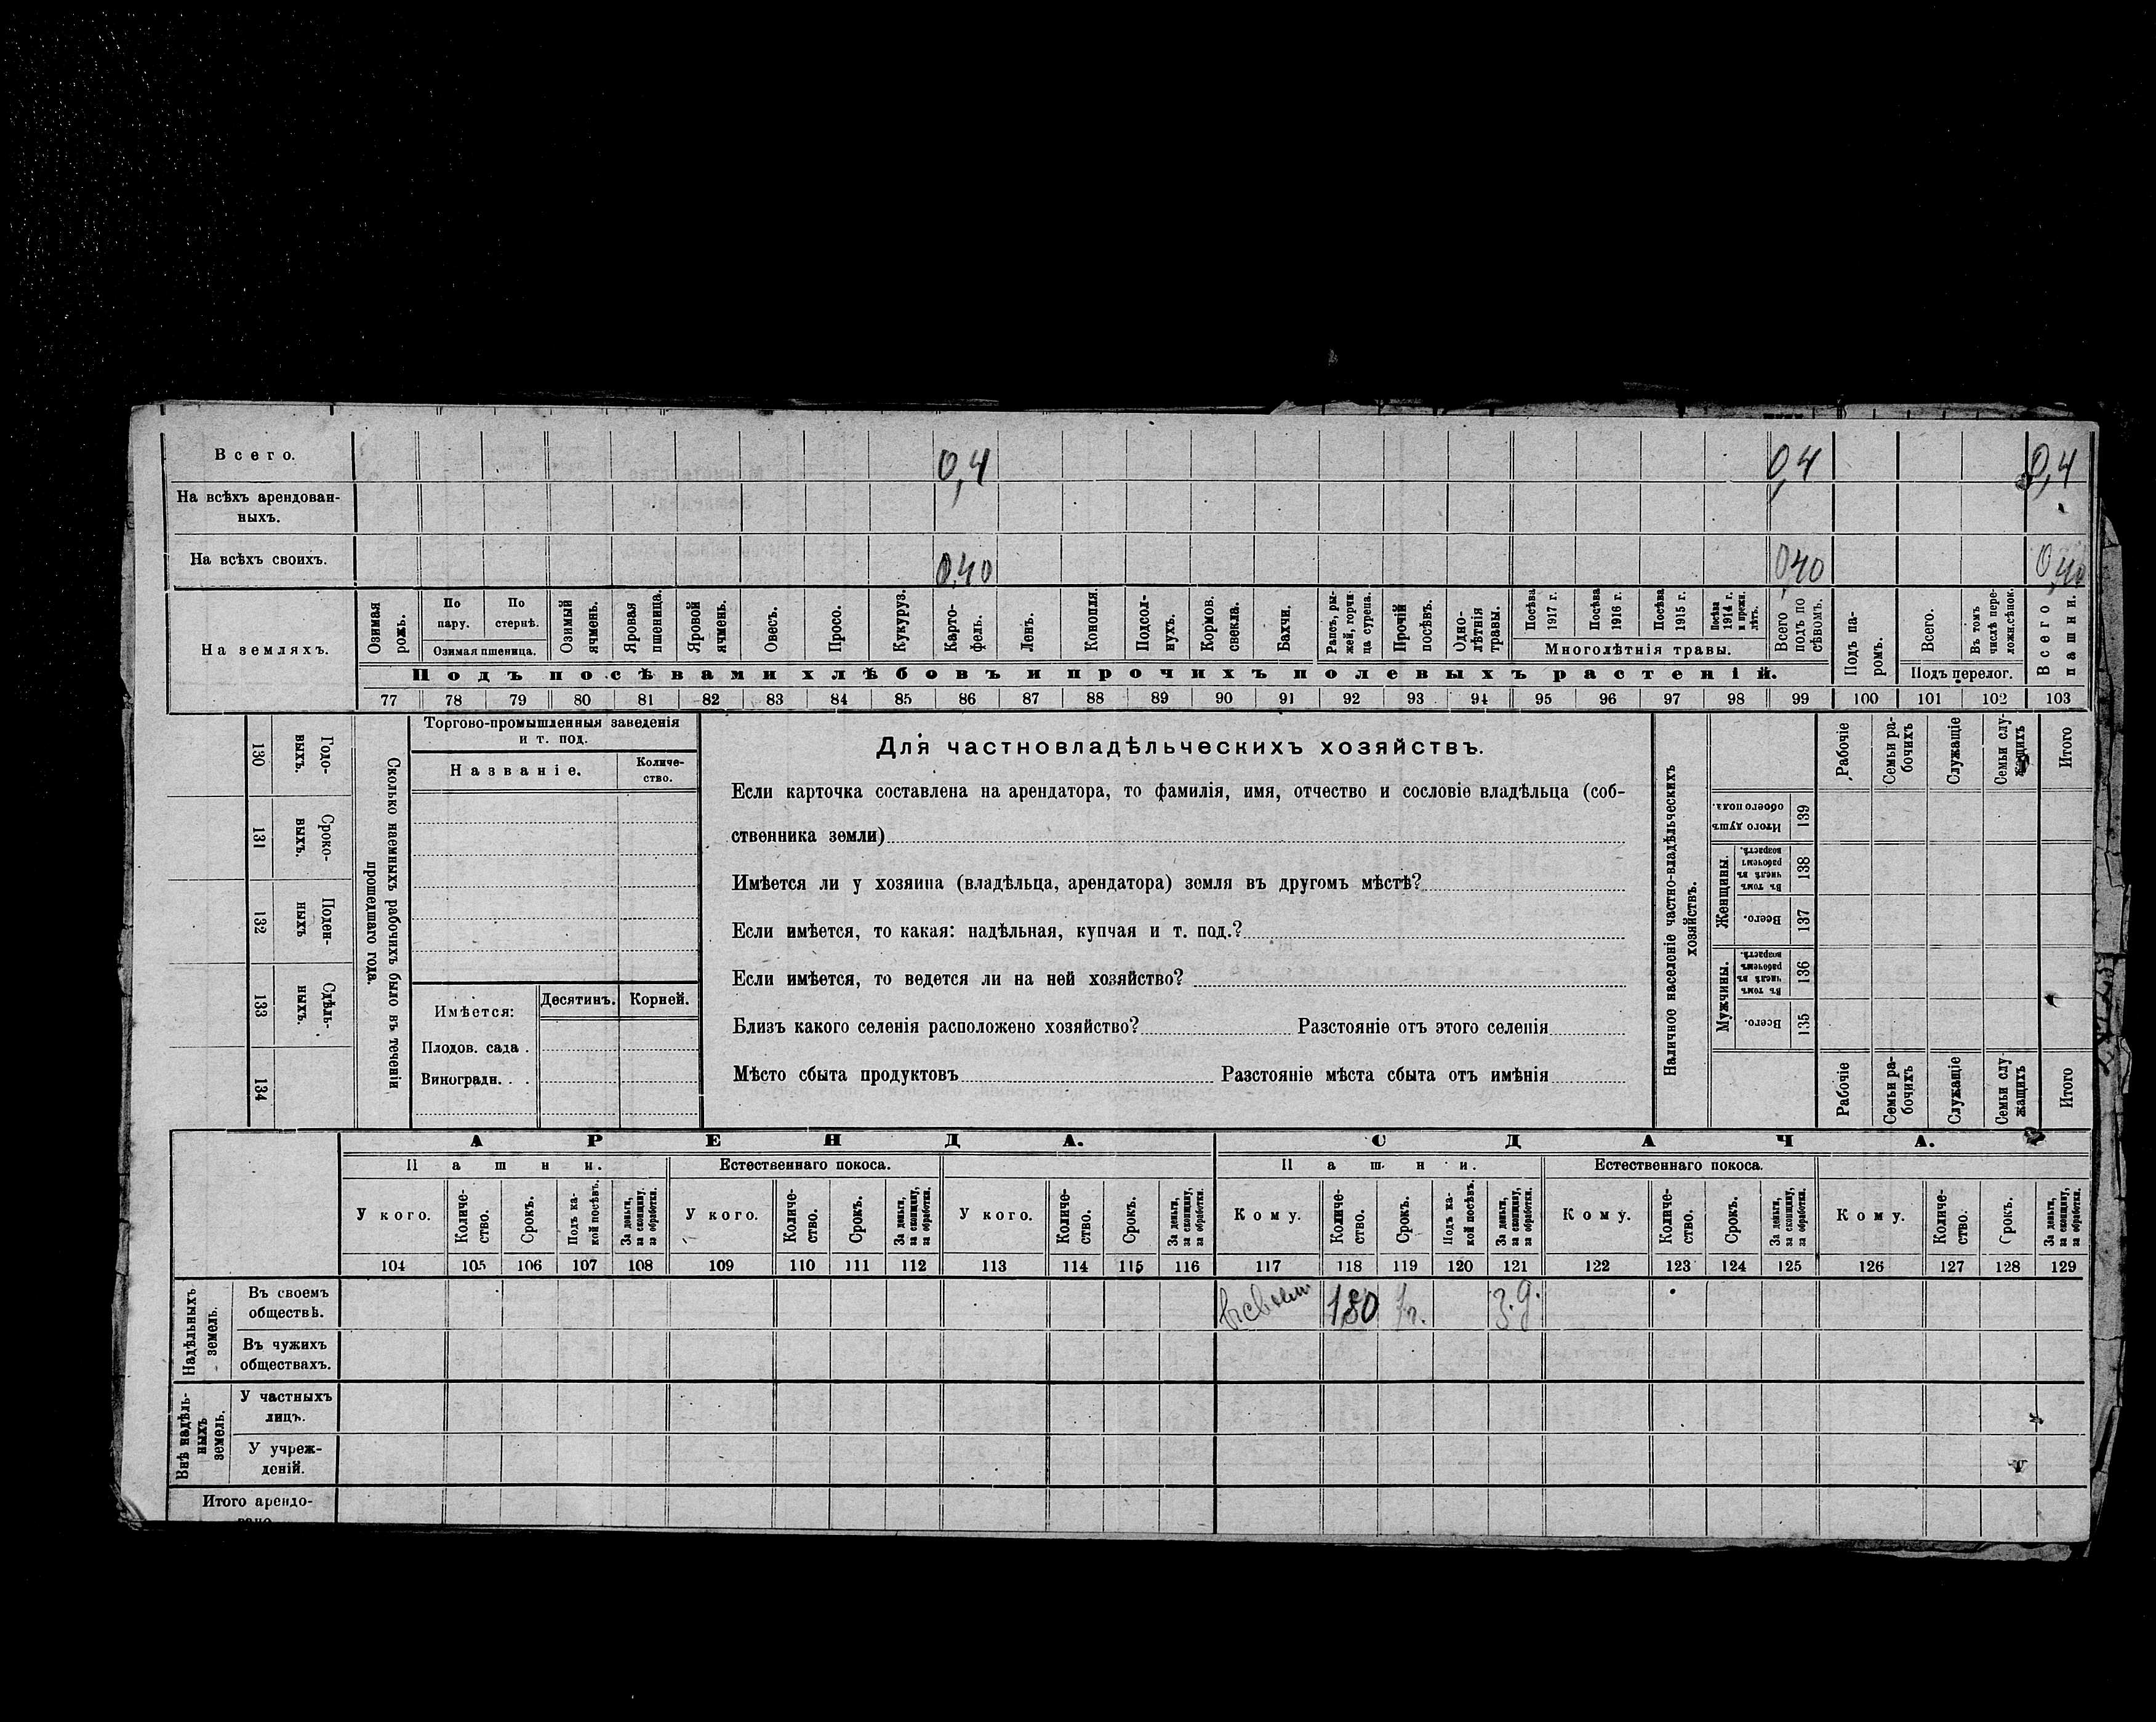 Всего. 0,4 0,4 0,4
На всѣхъ арендован-
ныхъ.
На всѣхъ своихъ. 0,40 0,40 0,40
На земляхъ.
Озимая рожь.
По пару.
По стернѣ.
Озимая пшеница.
Озимый ячмень.
Яровая пшеница.
Яровой ячмень.
Овесъ.
Просо.
Кукуруз.
Карто-
фель.
Ленъ.
Конопля.
Подсол-
нухъ.
Кормов. свекла.
Бахчи.
Рапсъ, ры-
жей, горчи-
ца сурепа.
Прочій посѣвъ.
Одно-
лѣтнія травы.
Посѣва 1917 г.
Посѣва 1916 г.
Посѣва 1915 г.
Посѣва 1914 г. и прежн. лѣтъ.
Многолѣтнія травы.
Всего подъ по сѣвомъ.
Подъ па-
ромъ.
Всего.
Въ томъ числѣ пере-
ложн.сѣнок.
Подъ перелог.
Всего пашни.
Подъ посѣвами хлѣбовъ и прочихъ полевыхъ растеній.
77 78 79 80 81 82 83 84 85 86 87 88 89 90 91 92 93 94 95 96 97 98 99 100 101 102 103
130 Годо-
выхъ.
131 Сроко-
выхъ.
132 Поден-
ныхъ
133 Сдѣль-
ныхъ.
134
Сколько наемныхъ рабочихъ было въ теченіи
прошедшаго года.
Торгово-промышленныя заведенія
и т. под.
Названіе.
Количе-
ство.
Имѣется: Десятинъ. Корней.
Плодов. сада .
Виноградн. . .
Для частновладѣльческихъ хозяйствъ.
Если карточка составлена на арендатора, то фамилія, имя, отчество и сословіе владѣльца (соб-
ственника земли)
Имѣется ли у хозяина (владѣльца, арендатора) земля въ другомъ мѣстѣ?
Если имѣется, то какая: надѣльная, купчая и т. под.?
Если имѣется, то ведется ли на ней хозяйство?
Близъ какого селенія расположено хозяйство? Разстояніе отъ этого селенія
Мѣсто сбыта продуктовъ Разстояніе мѣста сбыта отъ имѣнія
Наличное населеніе частно-владѣльческихъ
хозяйствъ.
Рабочіе
Семьи ра-
бочихъ
Служащіе
Семьи слу-
жащихъ
Итого
Итого душъ
обоего пола.
139
Женщины.
Въ томъ числѣ въ рабочемъ возрастѣ.
138
Всего.
137
Мужчины.
Въ томъ числѣ въ рабочемъ возрастѣ.
136
Всего.
135
Рабочіе
Семьи ра-
бочихъ
Служащіе
Семьи слу-
жащихъ
Итого
АРЕНДА. СДАЧА.
Пашни. Естественнаго покоса. Пашни. Естественнаго покоса.
У кого.
Количе-
ство.
Срокъ.
Подъ ка-
кой посѣвъ.
За деньги, за скопщину, за обработки.
У кого.
Количе-
ство.
Срокъ.
За деньги, за скопщину, за обработки.
У кого.
Количе-
ство.
Срокъ.
За деньги, за скопщину, за обработки.
Кому.
Количе-
ство.
Срокъ.
Подъ ка-
кой посѣвъ.
За деньги, за скопщину, за обработки.
Кому.
Количе-
ство.
Срокъ.
За деньги, за скопщину, за обработки.
Кому.
Количе-
ство.
Срокъ.
За деньги, за скопщину, за обработки.
104 105 106 107 108 109 110 111 112 113 114 115 116 117 118 119 120 121 122 123 124 125 126 127 128 129
Надѣльныхъ земель.
Въ своемъ
обществѣ. 1г. з.д.
Въ чужихъ
обществахъ.
Внѣ надѣль-
ныхъ земель.
У частныхъ
лицъ.
У учреж-
деній.
Итого арендо-
вано